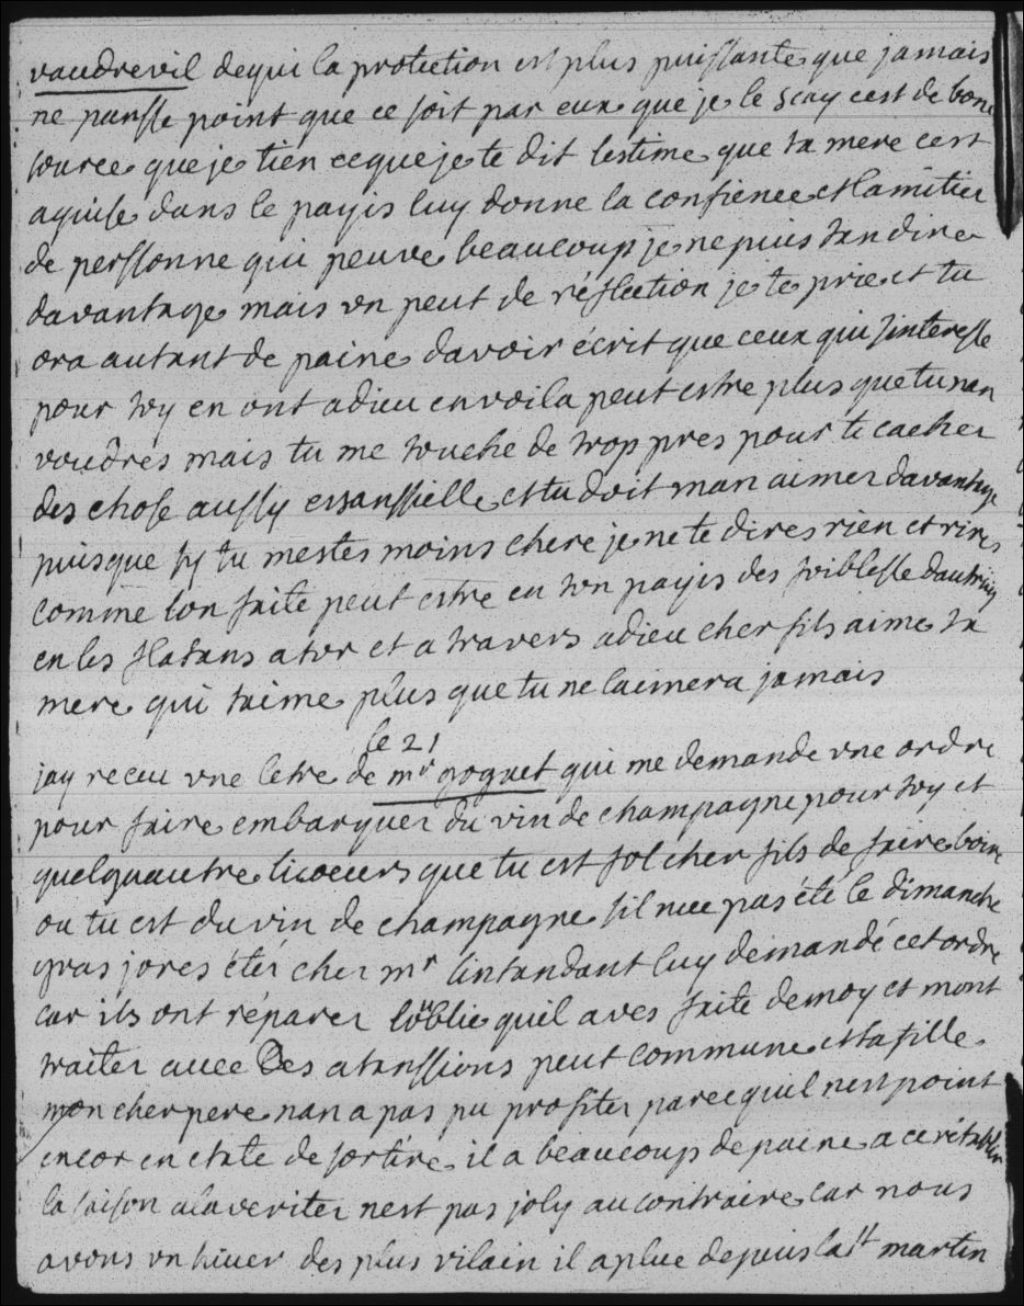 vaudrevil dequi la protection est plus puissante que jamais
ne pansse point que ce soit par eux que je le scay cest de bone
source que je tien ceque je te dit lestime que ta mere cest
aquise dans le payis luy donne la confience et lamitier
de perssonne qui peuve beaucoup je ne puis tan dire
davantage mais vn peut de réflection je te prie et tu
ora autant de paine davoir écrit que ceux qui sinteresse
pour toy en ont adieu en voila peut estre plus que tu nan
voudres mais tu me touche de trop pres pour te cacher
des chose aussy essanssielle et tu doit man aimer davantage
puisque sy tu mestes moins chere je ne te dires rien et rires
comme lon faite peut estre en ton payis des foiblesse dautruy
en les flatans a tor et a travers adieu cher fils aime ta
mere qui taime plus que tu ne laimera jamais
le 21
jay receu vne letre de mr goguet qui me demande vne ordre
pour faire embarquer du vin de champagne pour toy et
quelquautre licoeurs que tu est fol cher fils de faire boire
ou tu est du vin de champagne sil neu pas été le dimanche
gras jores étér cher mr lintandant luy demandé cet ordre
car ils ont réparer loüblie quil aves faite demoy et mont
traiter avec Des atanssions peut commune et sa fille
mon cher pere nan a pas pu profiter parce quil nest point
encor en etate de sortire il a beaucoup de paine a ce rétablir
la saison a la veriter nest pas joly au contraire car nous
avons vn hiver des plus vilain il a plue depuis la st martin